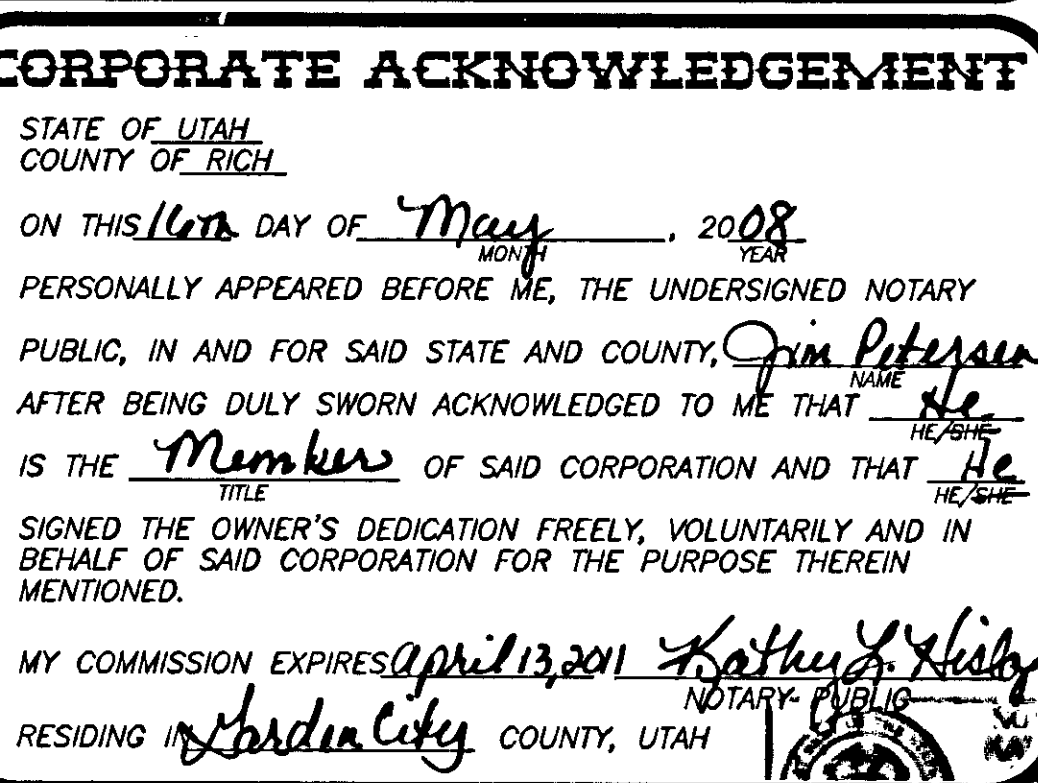 CORPORATE ACKNOWLEDGEMENT
STATE OF UTAH
COUNTY OF RICH
ON THIS 16th DAY OF May, 2008
MONTH YEAR
PERSONALLY APPEARED BEFORE ME, THE UNDERSIGNED NOTARY
PUBLIC, IN AND FOR SAID STATE AND COUNTY, Jim Petersen
NAME
AFTER BEING DULY SWORN ACKNOWLEDGED TO ME THAT He
HE/SHE
IS THE Member OF SAID CORPORATION AND THAT He
TITLE HE/SHE
SIGNED THE OWNER'S DEDICATION FREELY, VOLUNTARILY AND IN
BEHALF OF SAID CORPORATION FOR THE PURPOSE THEREIN
MENTIONED.
MY COMMISSION EXPIRES April 13, 2011 Kathy L. Hislop
NOTARY PUBLIC
RESIDING IN Garden City COUNTY, UTAH